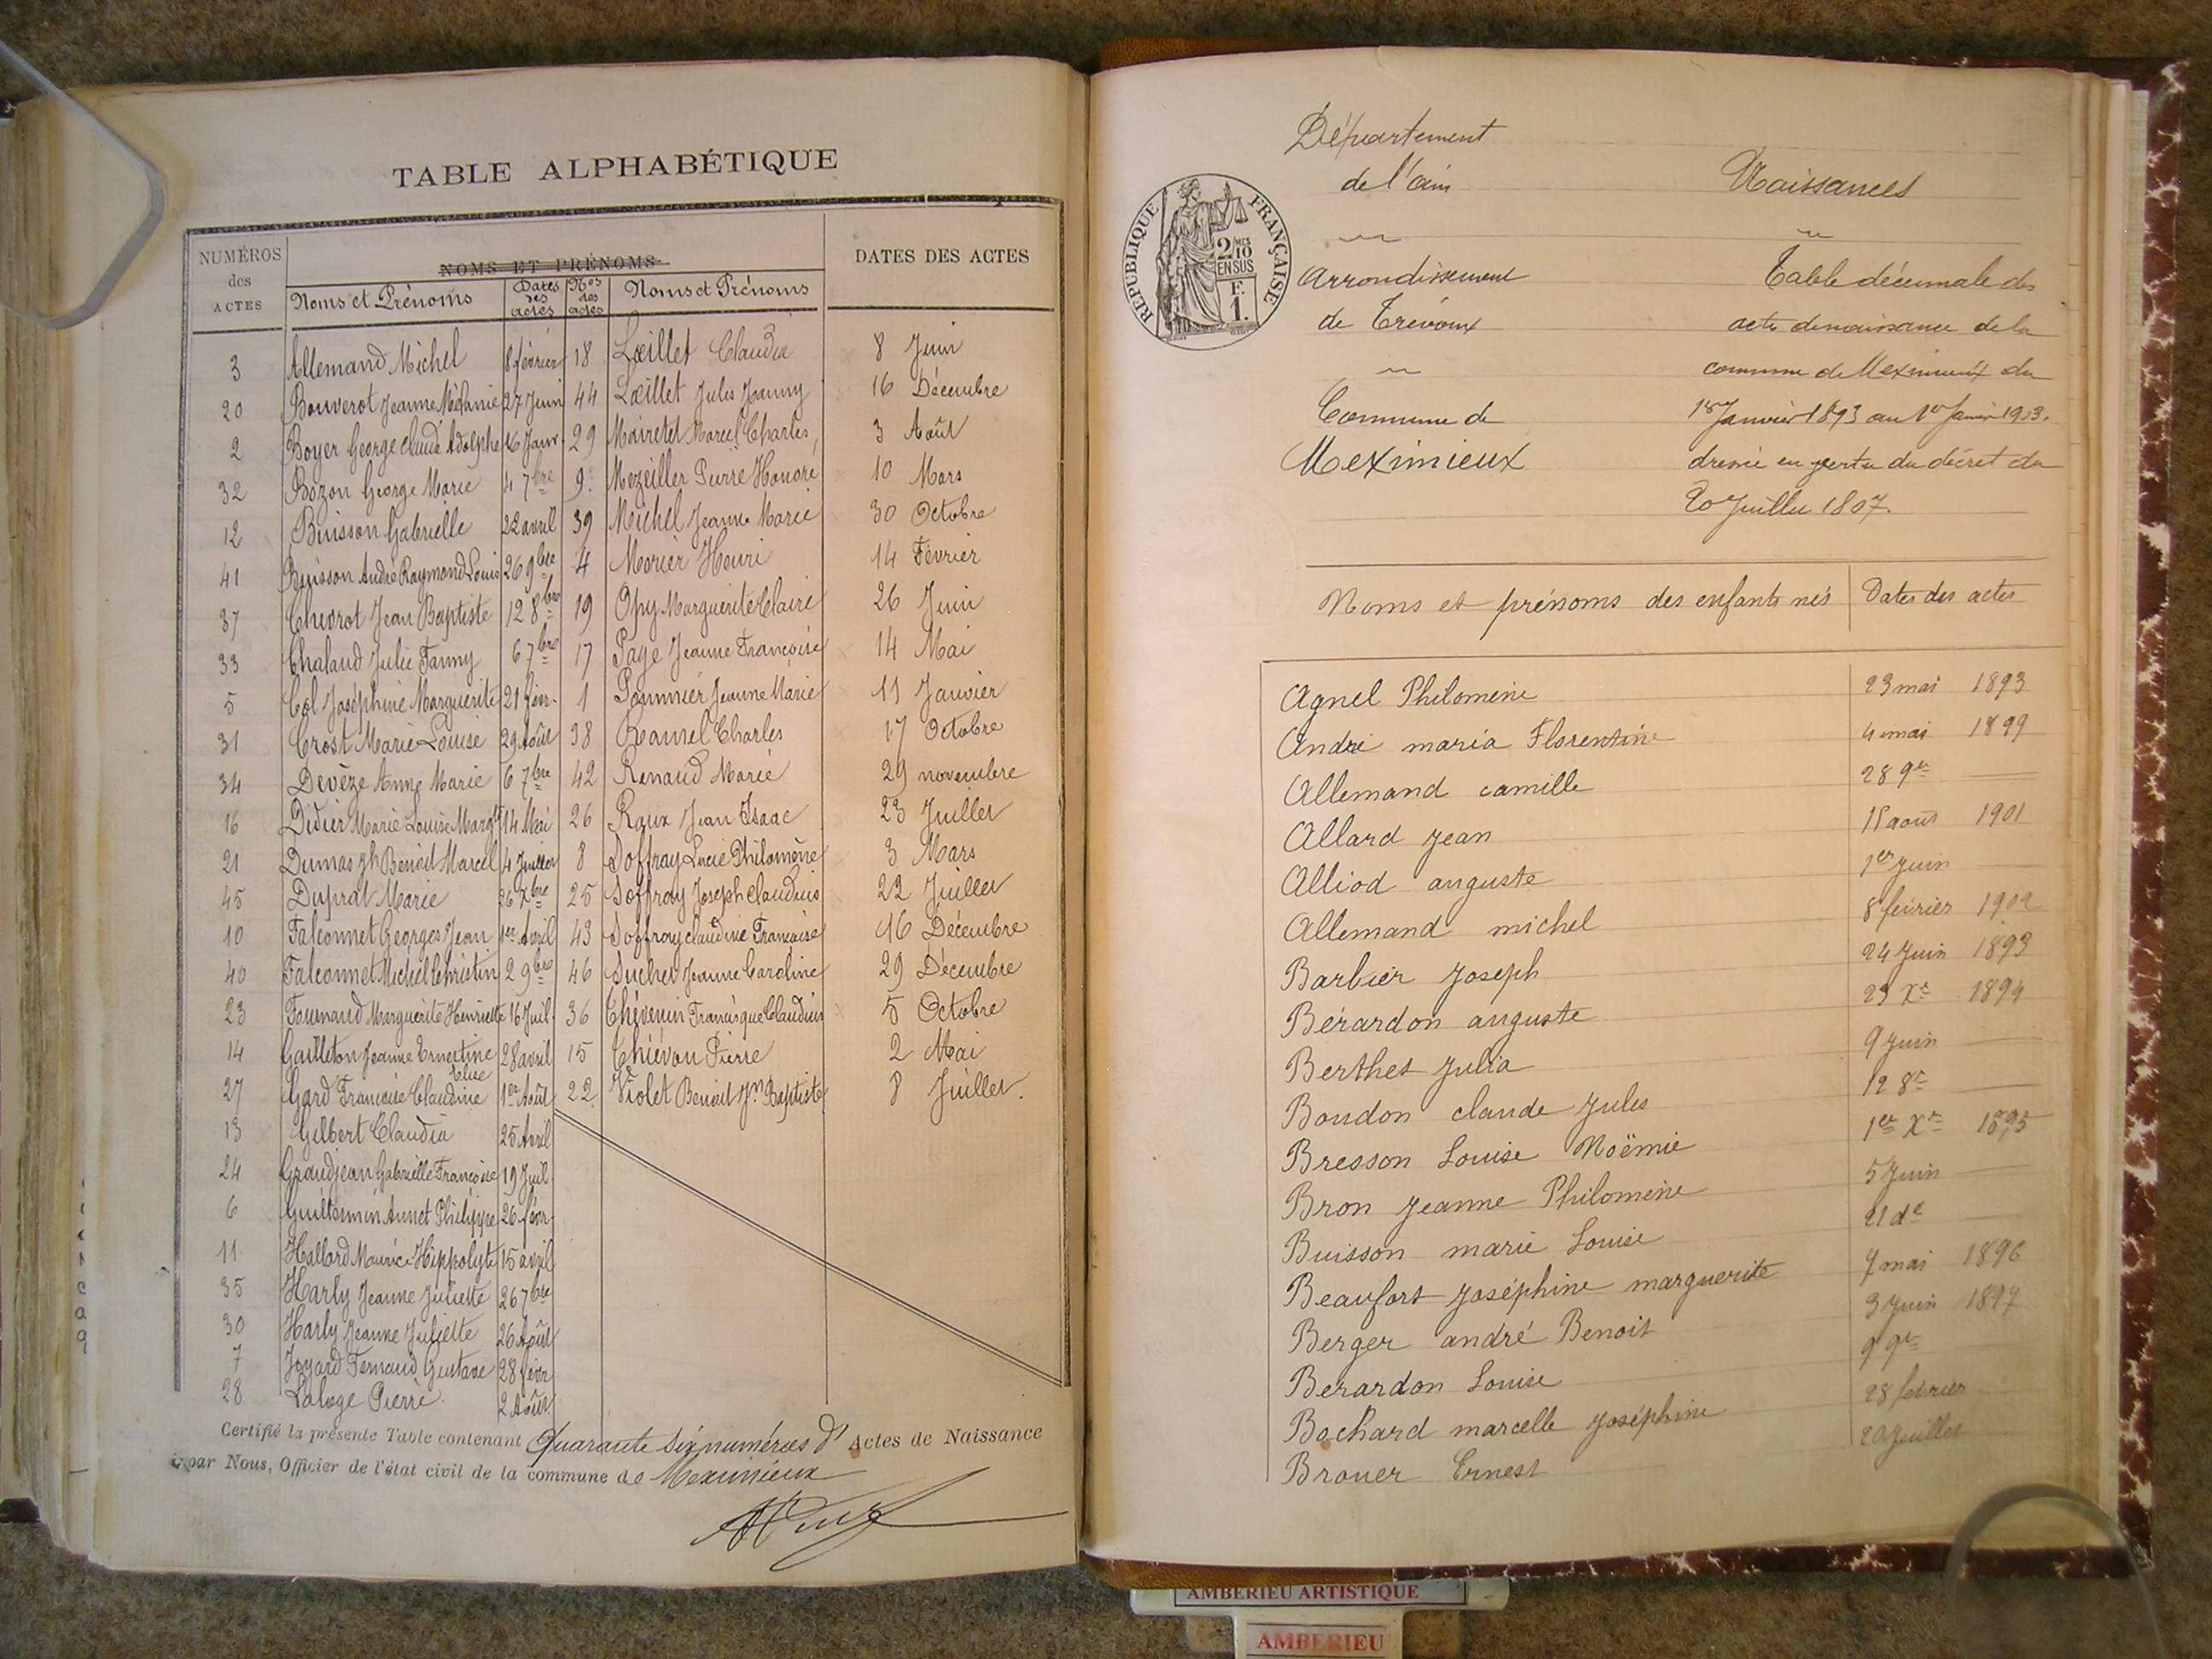 TABLE ALPHABÉTIQUE
NUMÉROS des ACTES
NOMS ET PRÉNOMS
DATES DES ACTES
Noms et Prénoms Dates des actes Nos des actes Noms et Prénoms
3 Allemand Michel 8 février 18 Lœillet Claudia 8 Juin
20 Bouverot Jeanne Mélanie 27 Juin 44 Lœillet Jules Fanny 16 Décembre
2 Boyer George Claude Adolphe 16 Janv. 29 Mairetet Marcel Charles 3 Août
32 Bozon George Marie 4 7bre 9 Mezeiller Pierre Honoré 10 Mars
12 Buisson Gabrielle 22 avril 39 Michel Jeanne Marie 30 Octobre
41 Buisson André Raymond Louis 26 9bre 4 Morier Henri 14 Février
37 Chevrot Jean Baptiste 12 8bre 19 Opy Marguerite Claire 26 Juin
33 Chaland Julie Fanny 6 7bre 17 Page Jeanne Françoise 14 Mai
5 Col Joséphine Marguerite 21 févr. 1 Pommier Jeanne Marie 11 Janvier
31 Crost Marie Louise 29 Août 38 Ramel Charles 17 Octobre
34 Devèze Anne Marie 6 7bre 42 Renaud Marie 29 novembre
16 Didier Marie Louise Margte 14 Mai 26 Roux Jean Isaac 23 Juillet
21 Dumas Jh Benoit Marcel 4 Juillet 8 Soffray Lucie Philomène 3 Mars
45 Duprat Marie 26 Xbre 25 Soffray Joseph Claudius 22 Juillet
10 Falconnet Georges Jean 1er Avril 43 Soffray Claudine Françoise 16 Décembre
40 Falconnet Michel Christin 2 9bre 46 Sucher Jeanne Caroline 29 Décembre
23 Fournand Marguerite Henriette 16 Juil. 36 Thévenin Francisque Claudius 5 Octobre
14 Gailleton Jeanne Ernestine 28 avril 15 Thiévon Pierre 2 Mai
27 Gard Françoise Claudine Elise 1er Août 22 Violet Benoit Jn Baptiste 8 Juillet.
13 Gilbert Claudia 25 Avril
24 Grandjean Gabrielle Françoise 19 Juil
6 Guillermin Annet Philippe 26 févr.
11 Hallard Maurice Hippolyte 15 avril
35 Harly Jeanne Juliette 26 7bre
30 Harly Jeanne Juliette 26 Août
7 Joyard Fernand Gustave 28 févr
28 Laloge Pierre 2 Août
Certifié la présente Table contenant Quarante six numéros d' Actes de Naissance
par Nous, Officier de l'état civil de la commune de Meximieux
Département
de l'ain
Arrondissement
de Trévoux
Commune de
Meximieux
RÉPUBLIQUE FRANÇAISE
2/10 MES
EN SUS
F.
1.
Naissances
Table décennale des
actes de naissance de la
commune de Meximieux du
1er Janvier 1893 au 1er Janvier 1903.
dressée en vertu du décret du
20 Juillet 1807.
Noms et prénoms des enfants nés Dates des actes
Agnel Philomène 23 mai 1893
André maria Florentine 4 mai 1899
Allemand camille 28 9re
Allard jean 15 aout 1901
Alliod auguste 1er juin
Allemand michel 8 février 1902
Barbier Joseph 24 Juin 1893
Berardon auguste 23 Xe 1894
Berthet julia 9 juin
Boudon claude jules 12 8re
Bresson Louise Noëmie 1er Xre 1895
Bron jeanne Philomène 5 Juin
Buisson marie Louise 21 do
Beaufort joséphine marguerite 7 mai 1896
Berger andré Benoit 3 Juin 1897
Berardon Louise 9 9re
Bochard marcelle joséphine 28 février
Brouer Ernest 20 juillet
AMBERIEU ARTISTIQUE
AMBERIEU